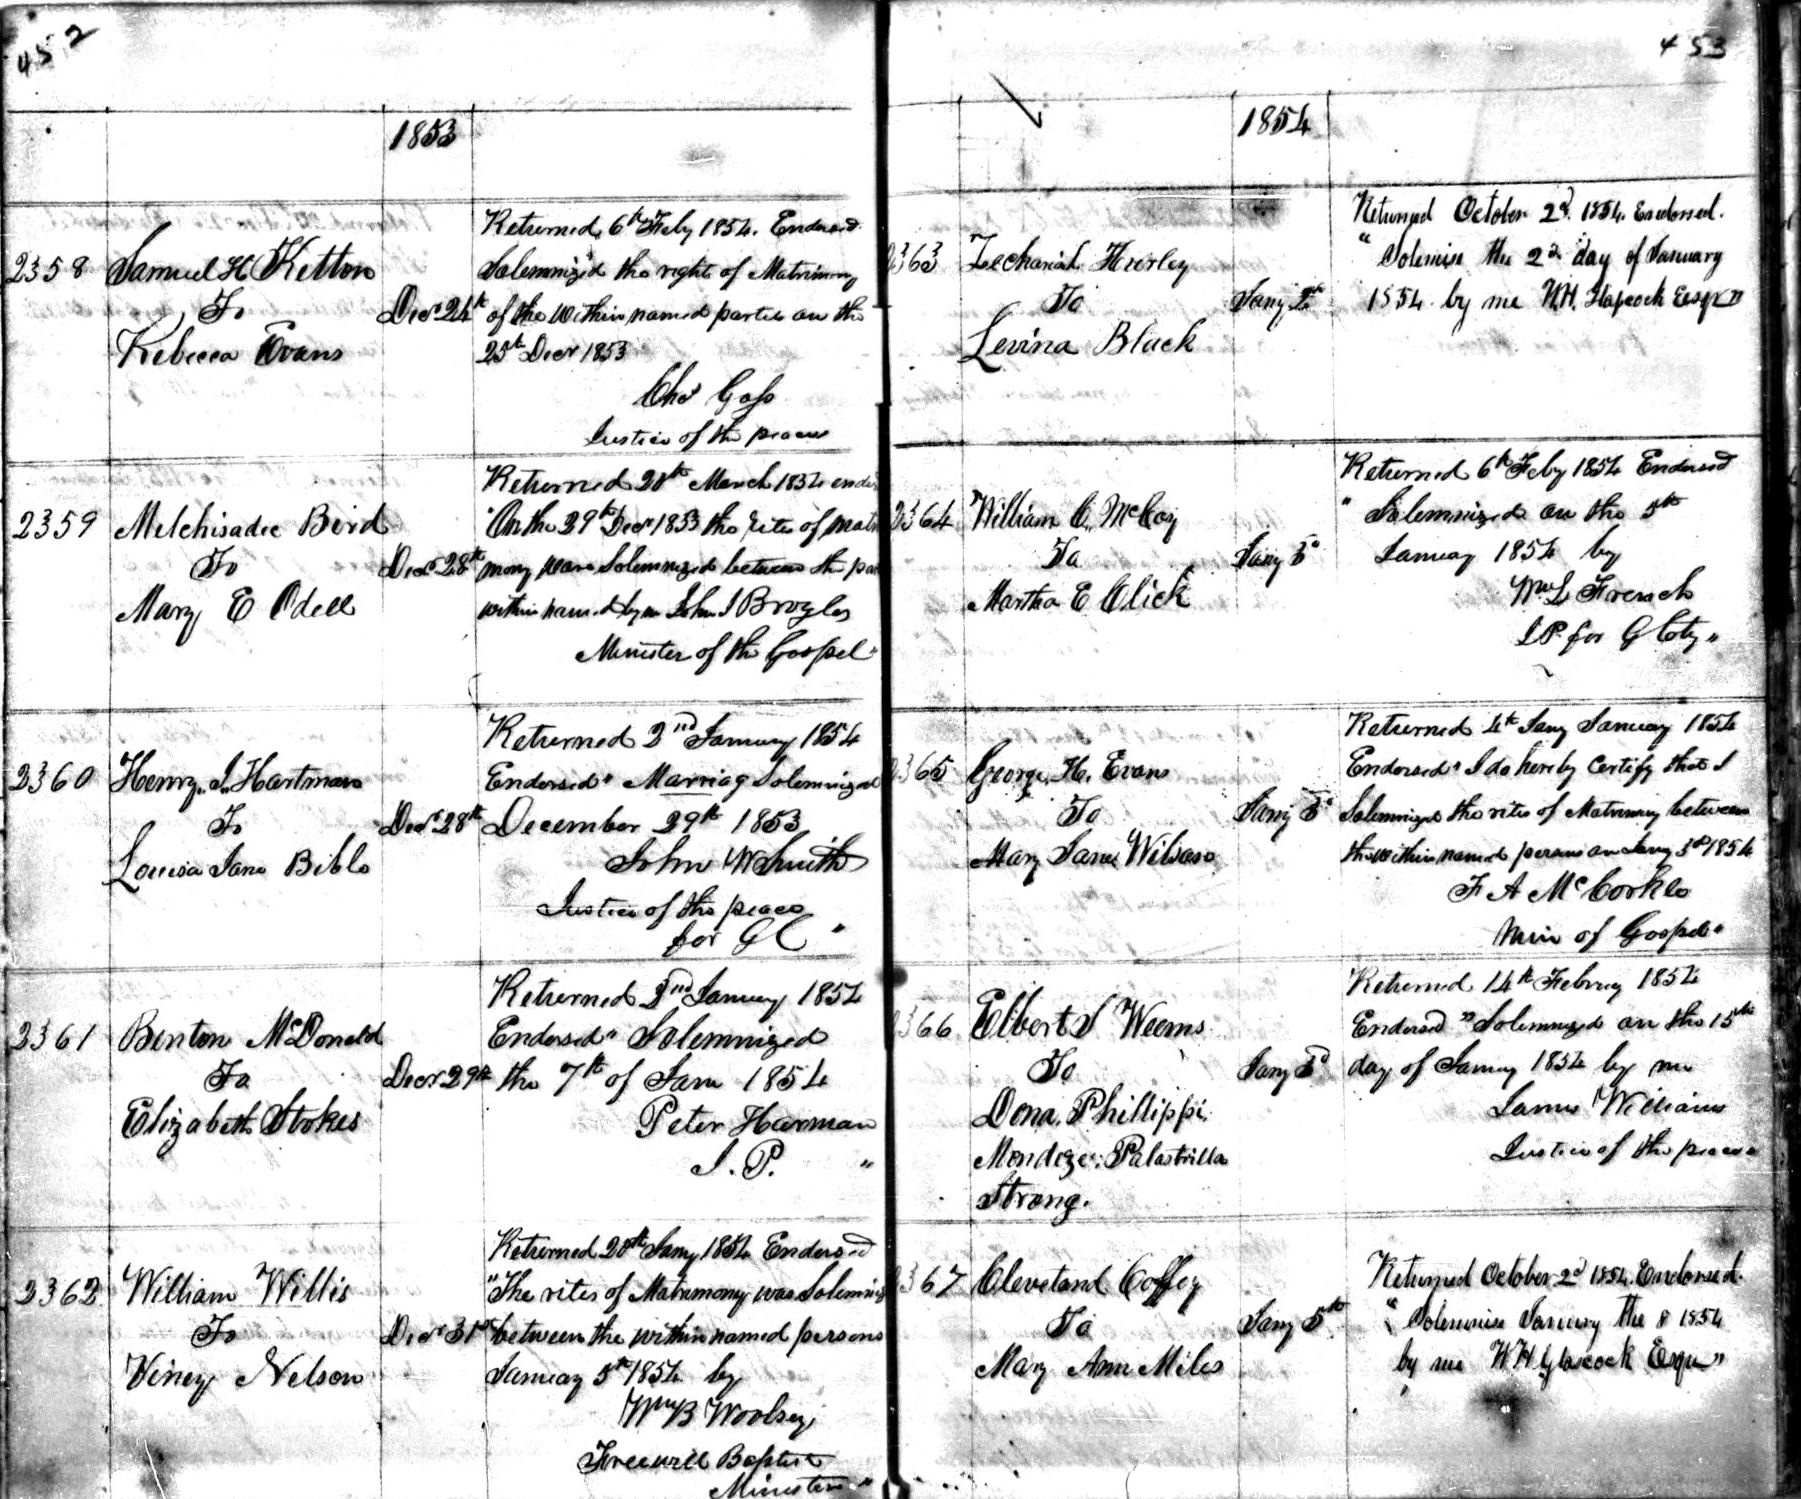 452
1853
2358
Samuel H Ketton
To
Rebecca Evans
Decr 24th
Returned 6th Feby 1854. Endorsed
Solemnized the rights of Matrimony
of the within named parties on the
25th Decr 1853
Chs Gass
Justice of the peace
2359
Melchisadec Bird
To
Mary E Odell
Decr 28th
Returned 20th March 1854
"On the 29th Decr 1853 the rites of
mony was Solemnized between the
within named by me John J Broyles
Minister of the Gospel"
2360
Henry J Hartman
To
Louisa Jane Bible
Decr 28th
Returned 2nd January 1854
Endorsed " Marriag Solemnized
December 29th 1853
John W Smith
Justice of the peace
for G C "
2361
Benton McDonald
To
Elizabeth Stokes
Decr 29th
Returned 2nd January 1854
Endorsed " Solemnized
the 7th of Jan 1854
Peter Harman
J. P. "
2362
William Willis
To
Viney Nelson
Decr 31st
Returned 20th Jany 1854 Endorsed
"The rites of Matrimony was
between the within named persons
January 5th 1854 by
Wm B Woolsey
Freewill Baptist
Minister "
453
1854
2363
Zechariah Hurley
To
Levina Black
Jany 2d
Returned October 2d 1854 Endorsed.
" Solemise the 2d day of January
1854 by me W.H. Esqr"
2364
William C. McCoy
To
Martha E Click
Jany 3d
Returned 6th Feby 1854 Endorsed
" Solemnized on the 5th
January 1854 by
Wm L French
J P for G Coty "
2365
George H. Evans
To
Mary Jane Wilson
Jany 3d
Returned 4th Jany January 1854
Endorsed " I do hereby Certify that I
Solemnized the rites of Matrimony between
the within named persons on Jany 3d 1854
F A McCorkle
Min of Gospel "
2366
Elbert S Weems
To
Dona. Phillippi.
Mendeze: Palastrilla
Strong.
Jany 3d
Returned 14th Februy 1854
Endorsed " Solemnized on the 15th
day of January 1854 by me
James Williams
Justice of the peace "
2367
Cleveland Coffey
To
Mary Ann Miles
Jany 5th
Returned October 2d 1854. Endorsed.
" Solemise January the 8 1854
by me W H Glascock Esqr "